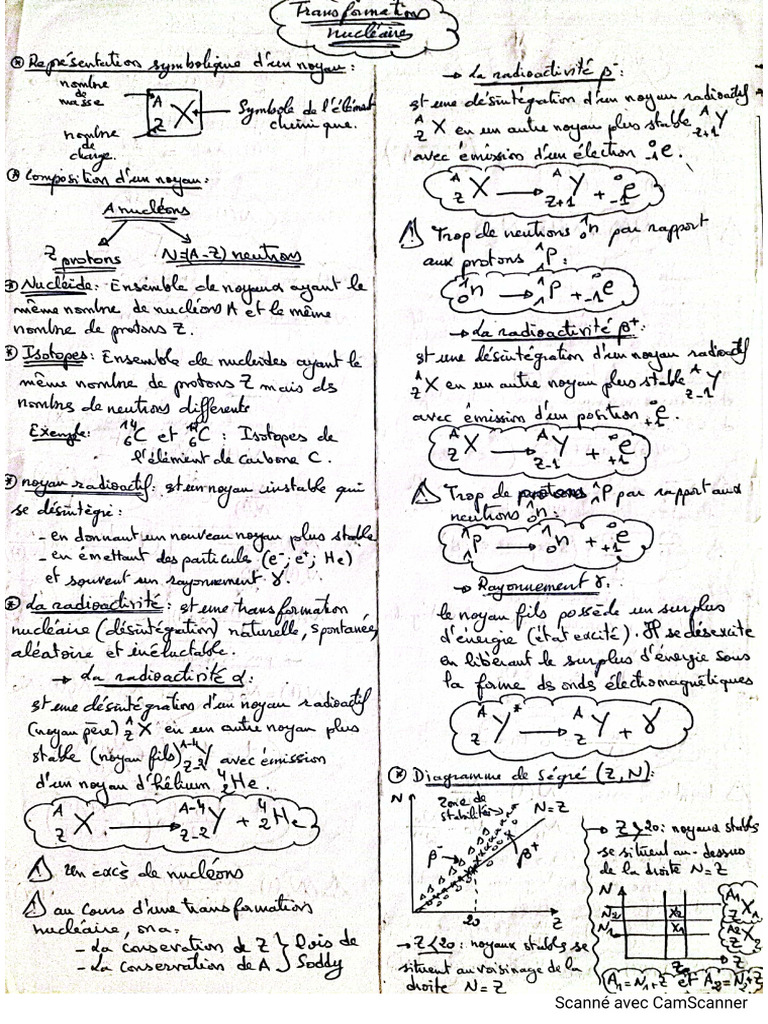 Transformations
nucléaires
* Représentation symbolique d'un noyau :
nombre
de
masse
A
Z
X
Symbole de l'élément
chimique.
nombre
de
charge.
* Composition d'un noyau :
A nucléons
Z protons N=(A-Z) neutrons
* Nucléide : Ensemble de noyaux ayant le
même nombre de nucléons A et le même
nombre de protons Z.
* Isotopes : Ensemble de nucleides ayant le
même nombre de protons Z mais ds
nombres de neutrons differents
Exemple : ¹⁴₆C et ¹²₆C : Isotopes de
l'élément de carbone C.
* noyau radioactif : est un noyau instable qui
se désintègre :
- en donnant un nouveau noyau plus stable
- en émettant des particules (e⁻; e⁺; He)
et souvent un rayonnement γ.
* La radioactivité : est une transformation
nucléaire (désintégration) naturelle, spontanée,
aléatoire et inéluctable.
→ La radioactivité α :
est une désintégration d'un noyau radioactif
(noyau père) ᴬ_Z X en un autre noyau plus
stable (noyau fils) ᴬ⁻⁴_Z-2 Y avec émission
d'un noyau d'hélium ⁴₂He.
ᴬ_Z X → ᴬ⁻⁴_Z-2 Y + ⁴₂He
⚠ Un excès de nucléons
⚠ au cours d'une transformation
nucléaire, on a :
- La consevation de Z } Lois de
- La Conservation de A } Soddy
→ La radioactivité β⁻ :
est une désintégration d'un noyau radioactif
ᴬ_Z X en un autre noyau plus stable ᴬ_Z+1 Y
avec émission d'un élection ⁰₋₁e.
ᴬ_Z X → ᴬ_Z+1 Y + ⁰₋₁e
⚠ Trop de neutrons ¹₀n par rapport
aux protons ¹₁P :
¹₀n → ¹₁P + ⁰₋₁e
→ La radioactivité β⁺ :
est une désintégration d'un noyau radioactif
ᴬ_Z X en un autre noyau plus stable ᴬ_Z-1 Y
avec émission d'un position ⁰₊₁e.
ᴬ_Z X → ᴬ_Z-1 Y + ⁰₊₁e
⚠ Trop de protons ¹₁P par rapport aux
neutrons ¹₀n :
¹₁P → ¹₀n + ⁰₊₁e
→ Rayonnement γ.
le noyau fils possède un surplus
d'énergie (état excité). Il se désexcite
en libérant le surplus d'énergie sous
la forme ds onds électromagnétiques
ᴬ_Z Y* → ᴬ_Z Y + γ
* Diagramme de ségré (Z, N) :
N
Zone de
stabilité
N=Z
β⁻
β⁺
20
Z
→ Z<20 : noyaux stables se
situent au voisinage de la
droite N=Z
→ Z>20 : noyaux stabls
se situent au-dessus
de la droite N=Z
N
N₂
N₁
X₂
X₁
Z
ᴬ¹_Z X₁
ᴬ²_Z X₂
A₁=N₁+Z et A₂=N₂+Z
Scanné avec CamScanner